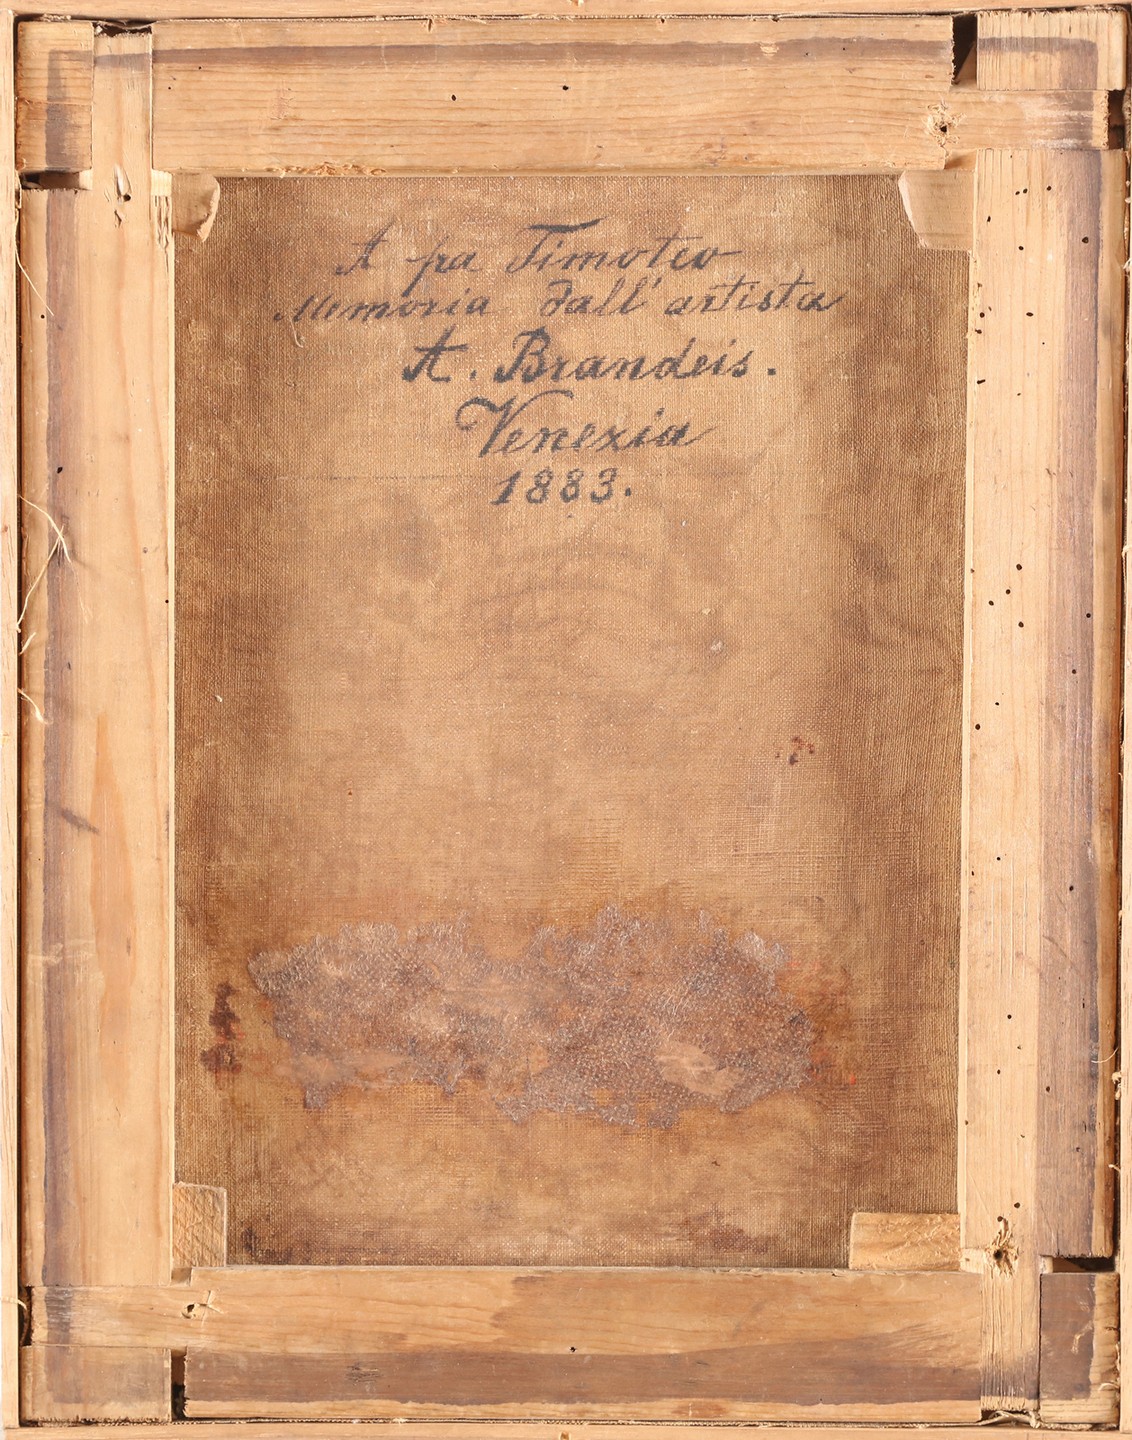 A fra Timoteo
Memoria dall' artista
A. Brandeis.
Venezia
1883.